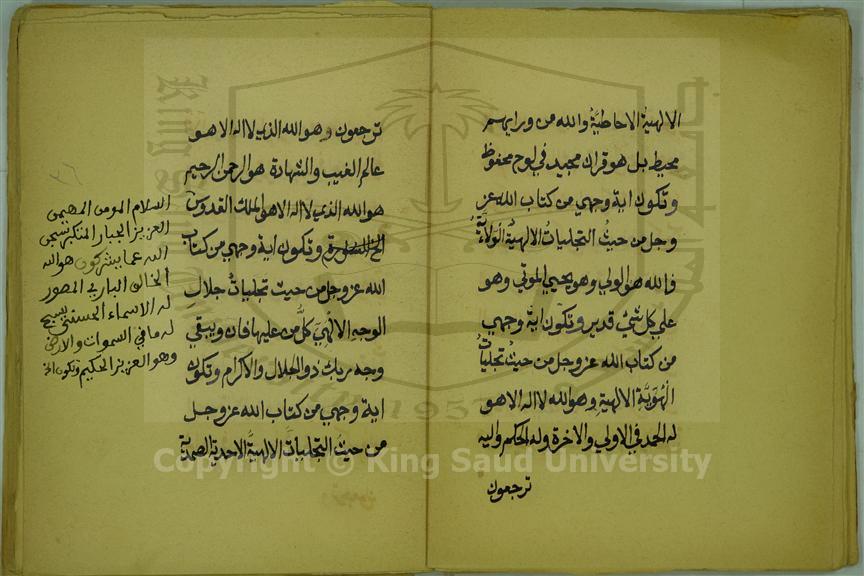 الالهية الاحاطيَّة والله من ورايهم
محيط بل هو قران مجيد في لوح محفوظ
وتكون اية وجهي من كتاب الله عز
وجل من حيثُ التجليات الالهية الولاية
فالله هو الولي وهو يحيي الموتي وهو
علي كل شئ قدير وتكون اية وجهي
من كتاب الله عز وجل من حيث تجليات
الهُويَّة الالهية وهو الله لا اله الا هو
له الحمد في الاولي والاخرة وله الحكم واليه
ترجعون
ترجعون وهو الله الذي لا اله الا هو
عالم الغيب والشهادة هو الرحمن الرحيم
هو الله الذي لا اله الا هو الملك القدوس
وتكون اية وجهي من كتاب
الله عز وجل من حيث تجليات جلال
الوجه الالهي كلُّ من عليها فان ويبقي
وجه ربك ذو الجلال والاكرام وتكون
اية وجهي من كتاب الله عز وجل
من حيث التجليات الالهية الاحدية الصمدية
٣٦
السلام المومن المهيمن
العزيز الجبار المتكبر سبحن
الله عما يشركون هو الله
الخالق الباري المصور
له الاسماء الحسني يسبح
له ما في السموات والارض
وهو العزيز الحكيم وتكون الخ
King Saud University
1957
Copyright © King Saud University